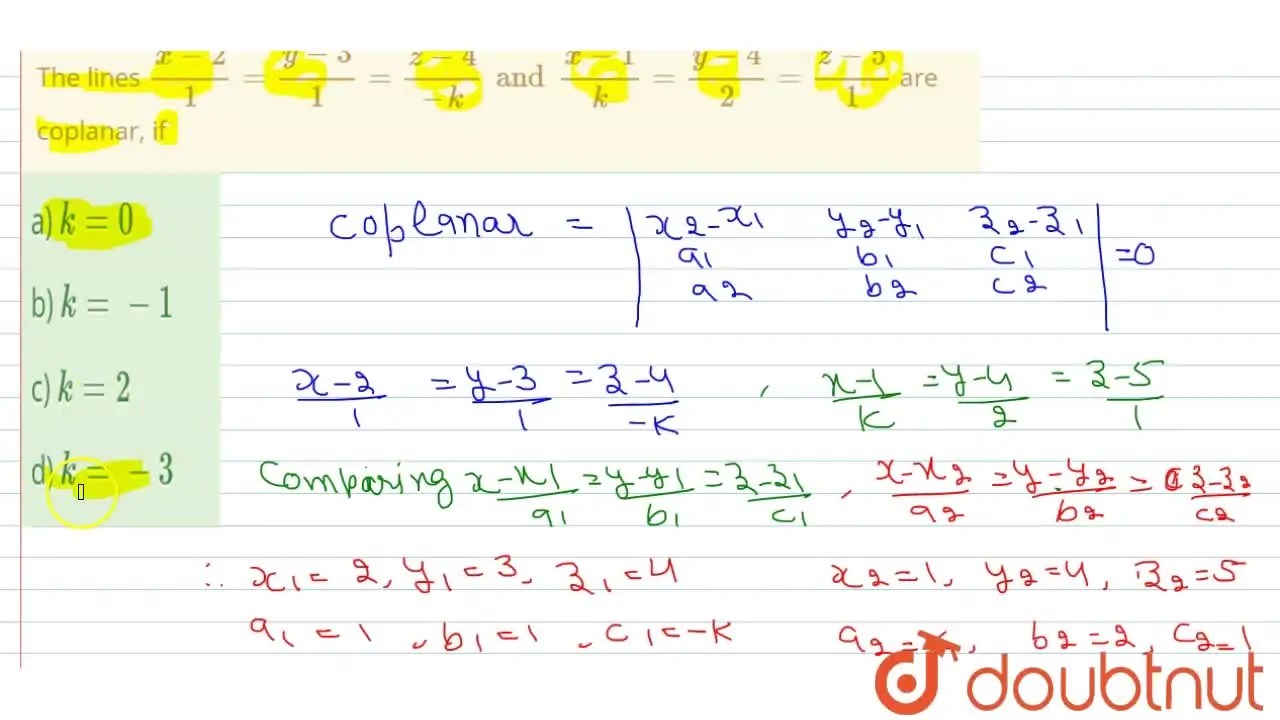 The lines x−2/1 = y−3/1 = z−4/−k and x−1/k = y−4/2 = z−5/1 are
coplanar, if
a) k = 0
b) k = −1
c) k = 2
d) k = −3
Coplanar = | x2-x1 y2-y1 z2-z1 |
a1 b1 c1 =0
a2 b2 c2
x-2/1 = y-3/1 = z-4/-k , x-1/k = y-4/2 = z-5/1
Comparing x-x1/a1 = y-y1/b1 = z-z1/c1 , x-x2/a2 = y-y2/b2 = z-z2/c2
∴ x1 = 2, y1 = 3, z1 = 4 x2=1, y2=4, z2=5
a1 = 1 , b1 = 1 , c1 = -k a2 = k, b2 = 2, c2 = 1
doubtnut